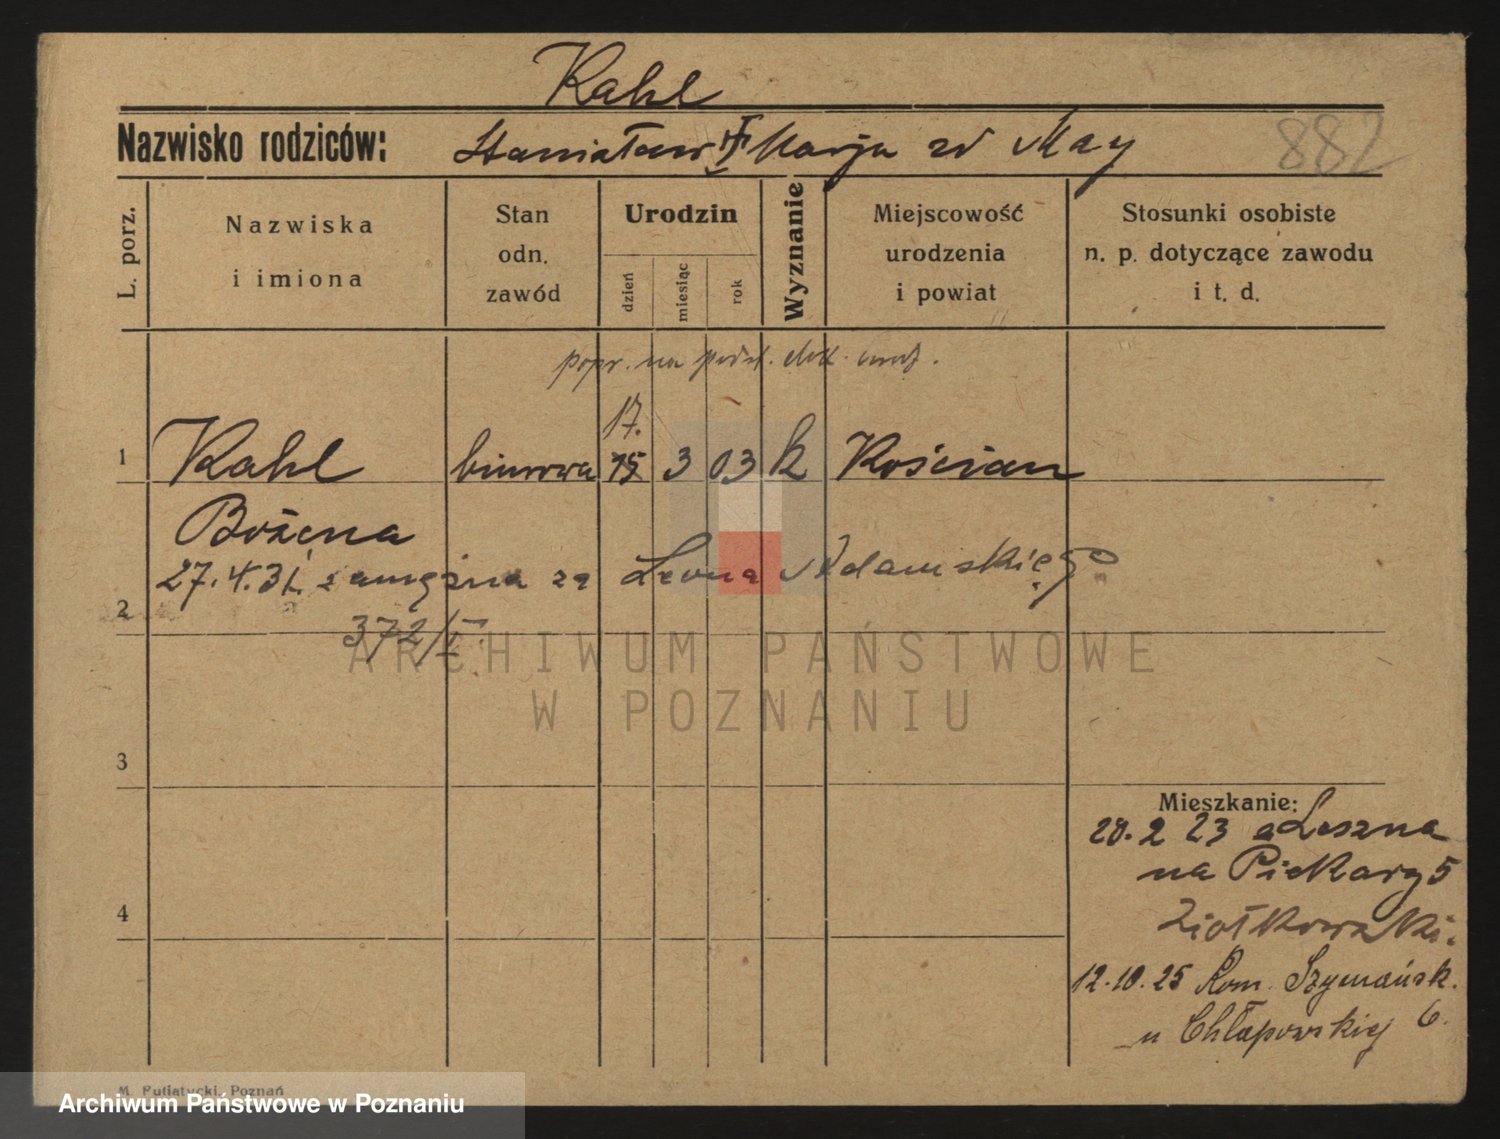 Kahl
Nazwisko rodziców: Stanisław Marja zd May 882
L. porz. Nazwiska i imiona Stan odn. zawód Urodzin dzień miesiąc rok Wyznanie Miejscowość urodzenia i powiat Stosunki osobiste n. p. dotyczące zawodu i t. d.
popr. na podst. dok.
17.
1 Kahl biurowa 15 3 03 k Kościan
Bożena
27.4.31. zamężna za Leona Adamskiego
2
372/I
ARCHIWUM PAŃSTWOWE
W POZNANIU
3
Mieszkanie:
20.2 23 z Leszna
na Piekary 5
4
Ziółkowski.
12.10.25 Rom. Szymańsk.
u Chłapowskiej 6.
M. Putiatycki, Poznań
Archiwum Państwowe w Poznaniu